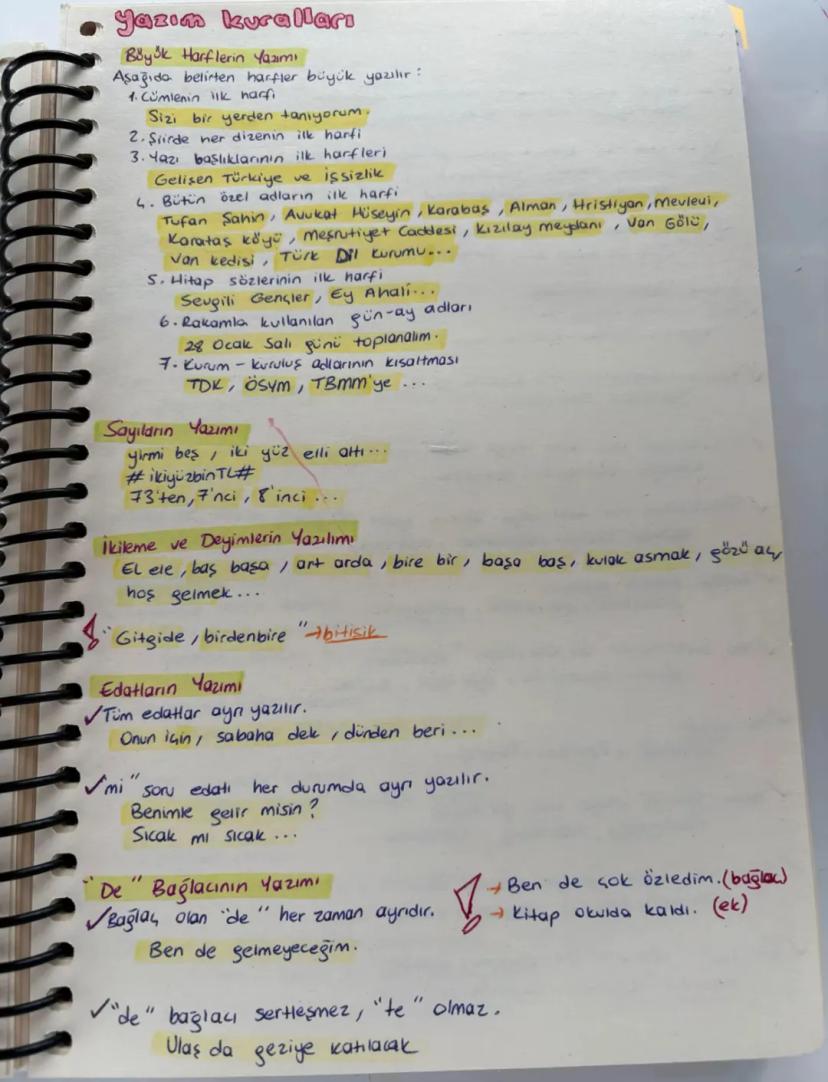 Yazım kuralları
Büyük Harflerin Yazımı
Aşağıda belirten harfler büyük yazılır :
1. Cümlenin ilk harfi
Sizi bir yerden tanıyorum.
2. Şiirde her dizenin ilk harfi
3. Yazı başlıklarının ilk harfleri
Gelişen Türkiye ve işsizlik
4. Bütün özel adların ilk harfi
Tufan Şahin, Avukat Hüseyin, Karabaş, Alman, Hristiyan, Mevlevi,
Karataş köyü, Meşrutiyet Caddesi, Kızılay meydanı, Van Gölü,
Van kedisi, Türk Dil Kurumu...
5. Hitap sözlerinin ilk harfi
Sevgili Gençler, Ey Ahali...
6. Rakamla kullanılan gün-ay adları
28 Ocak Salı günü toplanalım.
7. Kurum - kuruluş adlarının kısaltması
TDK, ÖSYM, TBMM'ye ...
Sayıların Yazımı
yirmi beş, iki yüz elli altı...
# ikiyüzbinTL#
73'ten, 7'nci, 8'inci ...
İkileme ve Deyimlerin Yazılımı
El ele, baş başa, art arda, bire bir, başa baş, kulak asmak, gözü aç,
hoş gelmek...
! "Gitgide, birdenbire" → bitişik
Edatların Yazımı
✓Tüm edatlar ayrı yazılır.
Onun için, sabaha dek, dünden beri...
✓mi" soru edatı her durumda ayrı yazılır.
Benimle gelir misin?
Sıcak mı sıcak ...
"De" Bağlacının Yazımı
✓Bağlaç olan "de" her zaman ayrıdır.
Ben de gelmeyeceğim.
! → Ben de çok özledim. (bağlaç)
→ Kitap okulda kaldı. (ek)
✓"de" bağlacı sertleşmez, "te" olmaz.
Ulaş da geziye katılacak